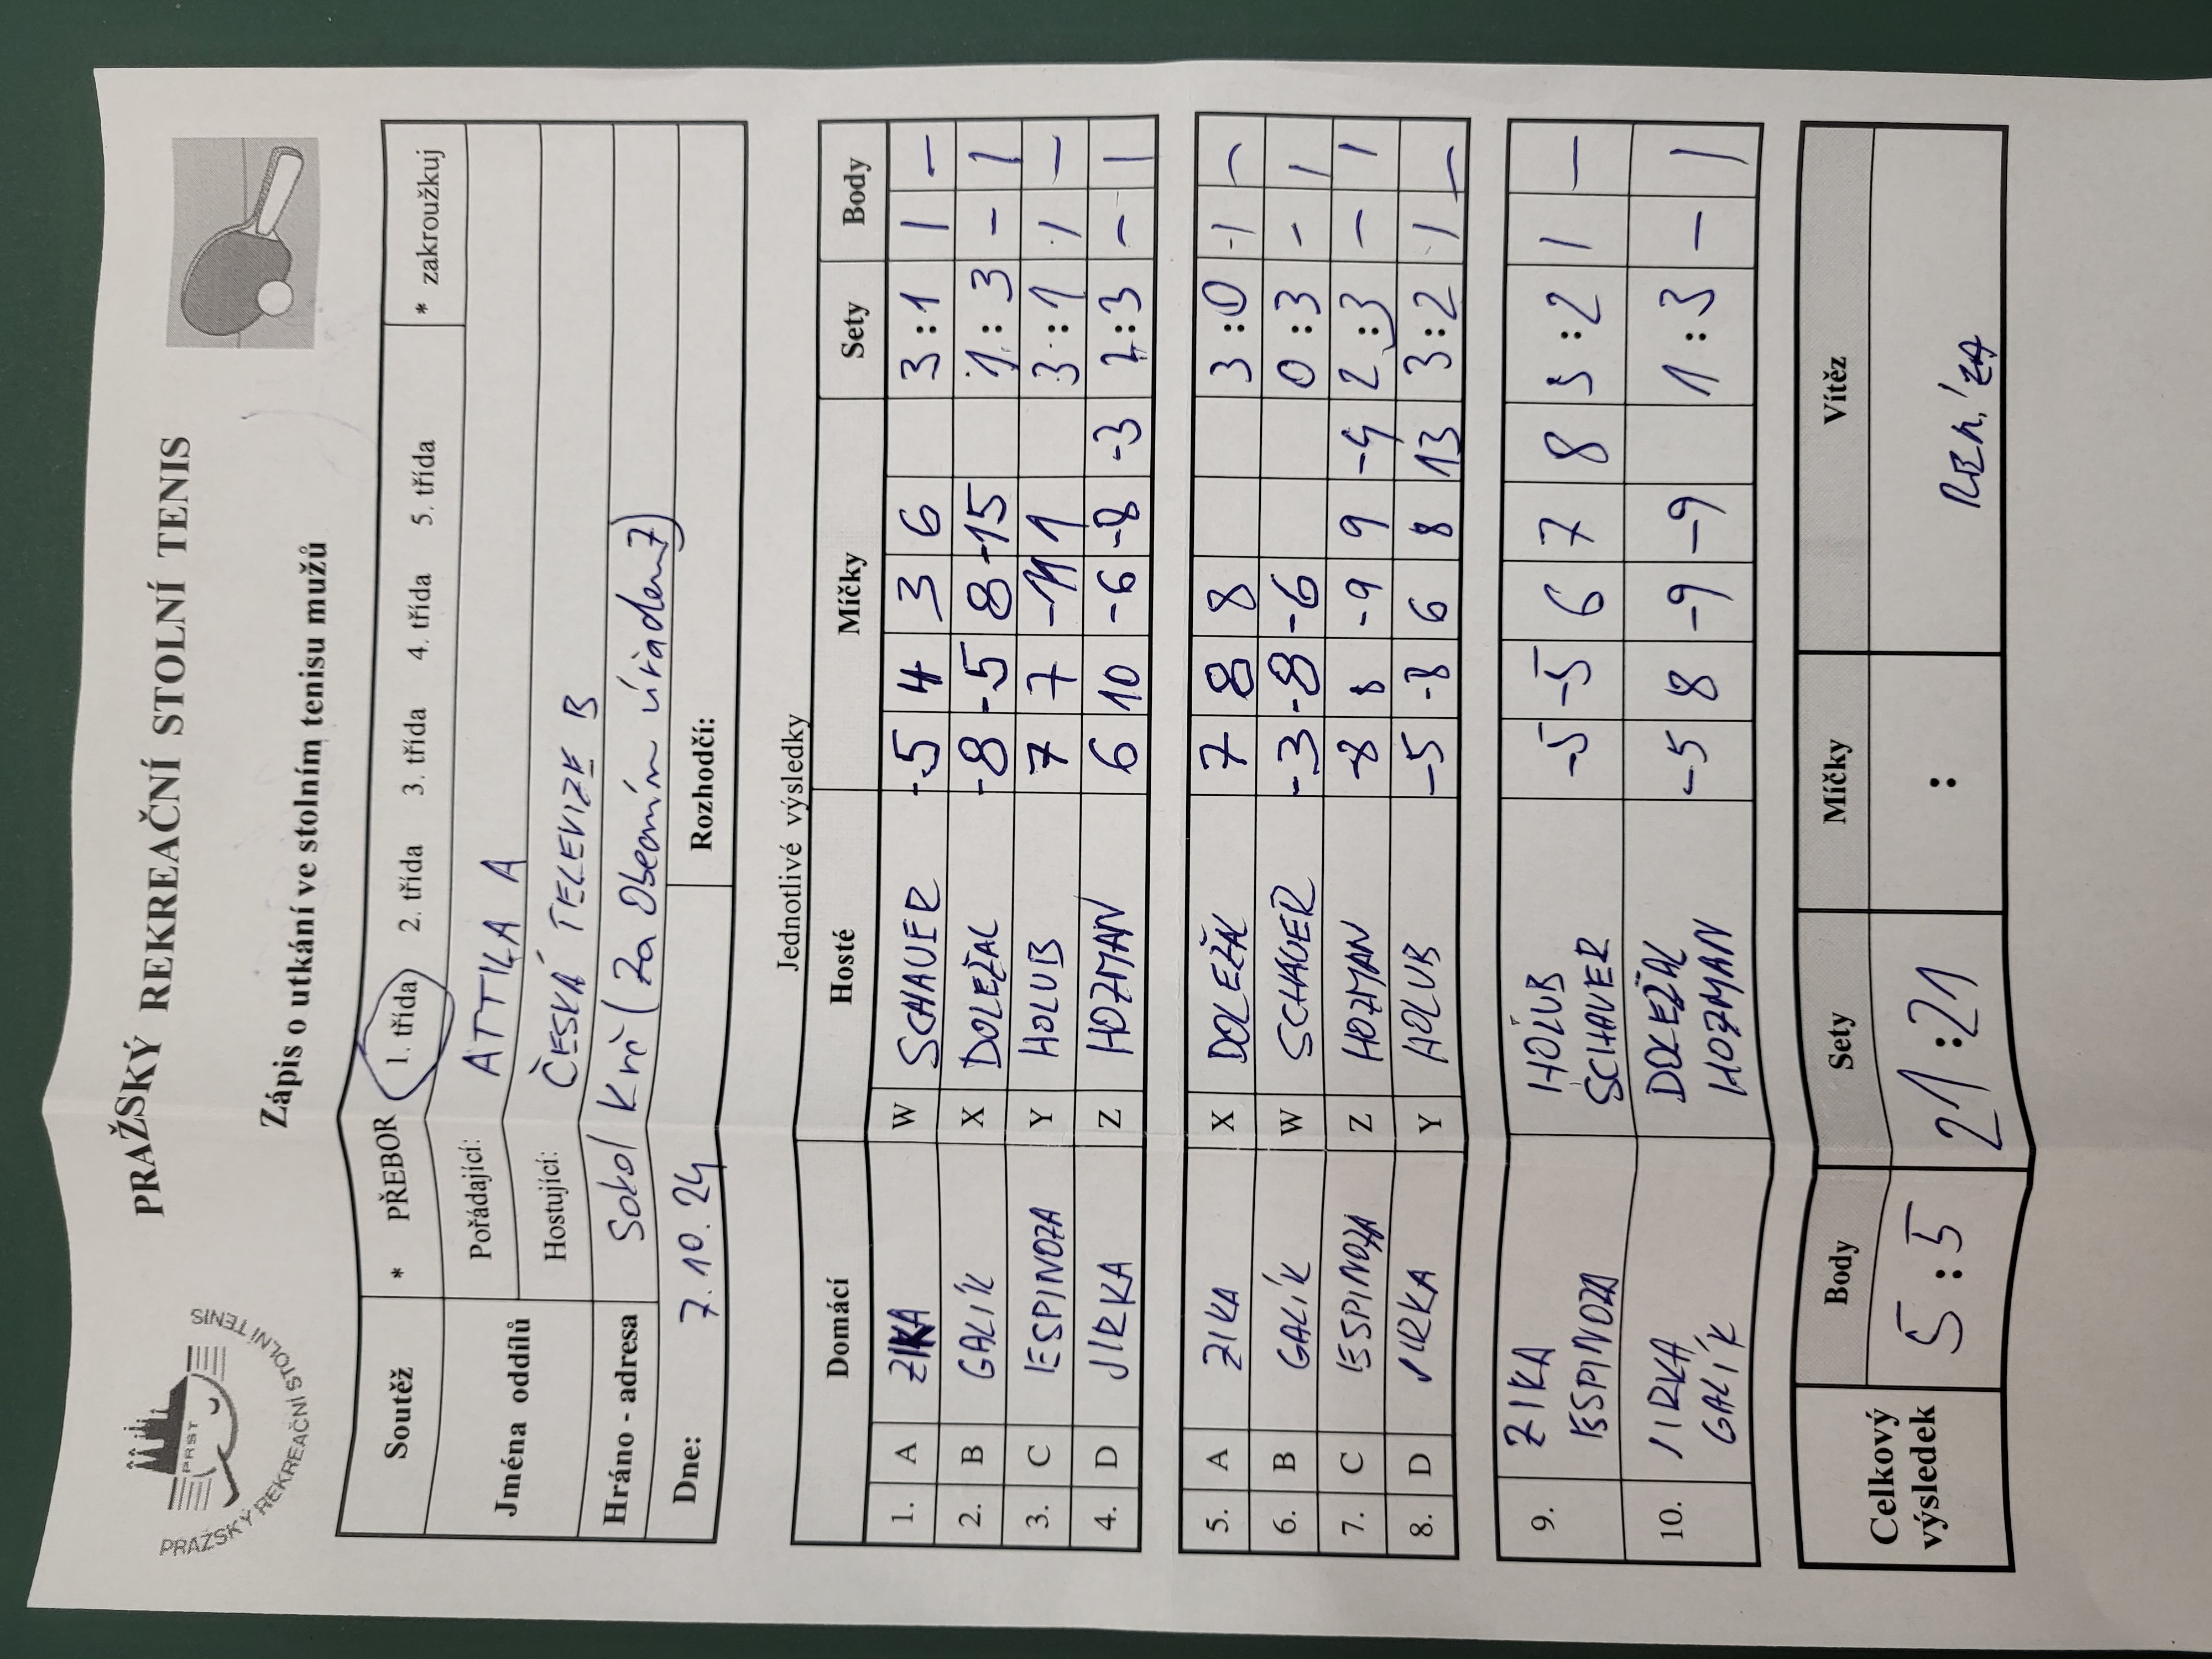 PRAŽSKÝ REKREAČNÍ STOLNÍ TENIS
PRST
PRAŽSKÝ REKREAČNÍ STOLNÍ TENIS
Zápis o utkání ve stolním tenisu mužů
Soutěž * PŘEBOR 1. třída 2. třída 3. třída 4. třída 5. třída * zakroužkuj
Jména oddílů
Pořádající: ATTILA A
Hostující: ČESKÁ TELEVIZE B
Hráno - adresa Sokol Krč (Za Obecním úřadem 7)
Dne: 7.10.24 Rozhodčí:
Jednotlivé výsledky
Domácí Hosté Míčky Sety Body
1. A ZIKA W SCHAUER -5 4 3 6 3:1 1 –
2. B GALÍK X DOLEŽAL -8 -5 8 -15 1:3 – 1
3. C ESPINOZA Y HOLUB 7 7 -11 1 3:1 1 –
4. D JIRKA Z HOZMAN 6 10 -6 -8 -3 2:3 – 1
5. A ZIKA X DOLEŽAL 7 8 8 3:0 1 –
6. B GALÍK W SCHAUER -3 -8 -6 0:3 – 1
7. C ESPINOZA Z HOZMAN -8 8 -9 9 -4 2:3 – 1
8. D JIRKA Y HOLUB -5 -8 6 8 13 3:2 1 –
9. ZIKA HOLUB -5 -5 6 7 8 3:2 1 –
ESPINOZA SCHAUER
10. JIRKA DOLEŽAL -5 8 -9 -9 1:3 – 1
GALÍK HOZMAN
Celkový výsledek Body Sety Míčky Vítěz
5:5 21:21 :